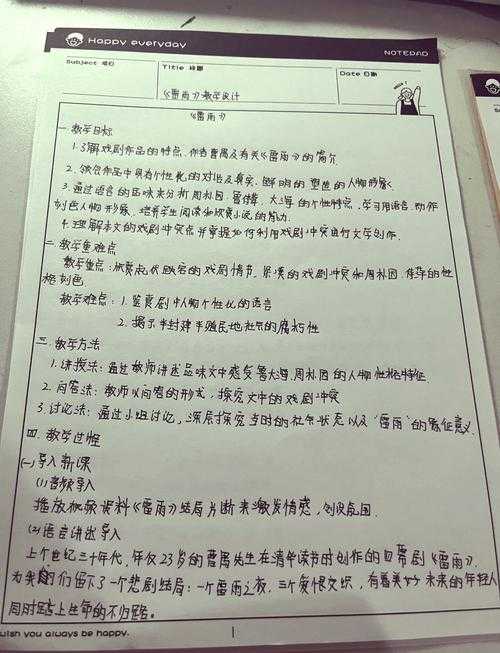 Happy everyday
NOTEPAD
Subject 科目
Title 标题
Date 日期
《雷雨》教学设计
《雷雨》
一.教学目标
1.了解戏剧作品的特点,作者曹禺及有关《雷雨》的简介.
2.领会作品中具有个性化的对话及真实、鲜明的塑造的人物形象.
3.通过语言的品味来分析周朴园、鲁侍萍、大海的个性特点,学习用语言、动作
刻画人物形象,培养学生阅读和欣赏小说的能力.
4.理解本文的戏剧冲突点并掌握如何利用戏剧冲突进行文学创作.
二.教学重难点
教学重点:欣赏起伏跌宕的戏剧情节,紧凑的戏剧冲突和周朴园、侍萍的性
格刻画
教学难点:1.鉴赏剧中人物个性化的语言
2.揭示半封建半殖民地社会的腐朽性
三.教学方法
1.讲授法:通过教师讲述品味文中感受鲁大海、周朴园的人物性格特征
2.问答法:教师以问答的形式,探究文中的戏剧冲突
3.讨论法:通过小组讨论,深层探究当时的社会状态以及“雷雨”的象征意义.
四.教学过程
(一)导入新课
(1)音频导入
播放视频资料《雷雨》结局片断来激发情感,创设氛围.
(2)语言讲述导入
上个世纪三十年代,年仅23岁的曹禺先生在清华读书时创作的四幕剧《雷雨》,
为我们留下了一个悲剧结局:一个雷雨之夜,三个爱恨交织,有着美好未来的年轻人
同时踏上生命的不归路。
wish you always be happy.